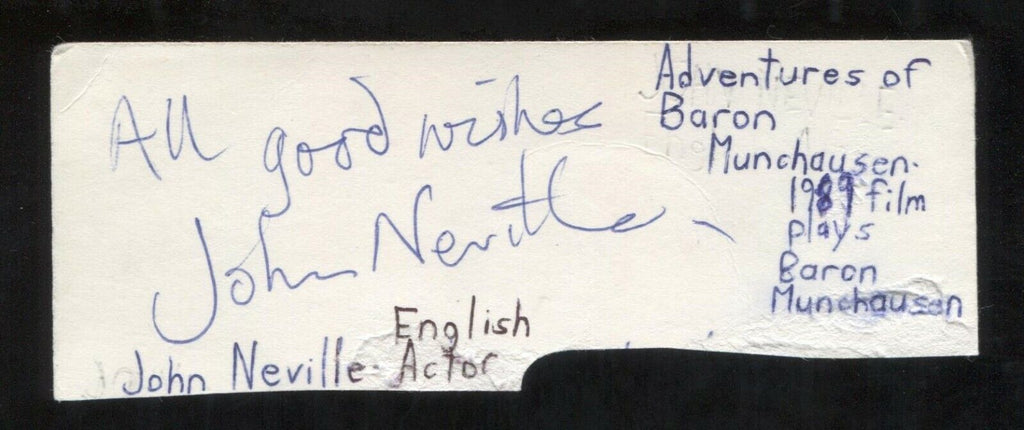 All good wishes
John Neville
John Neville. English
Actor
Adventures of
Baron
Munchausen.
1989 film
plays
Baron
Munchausen